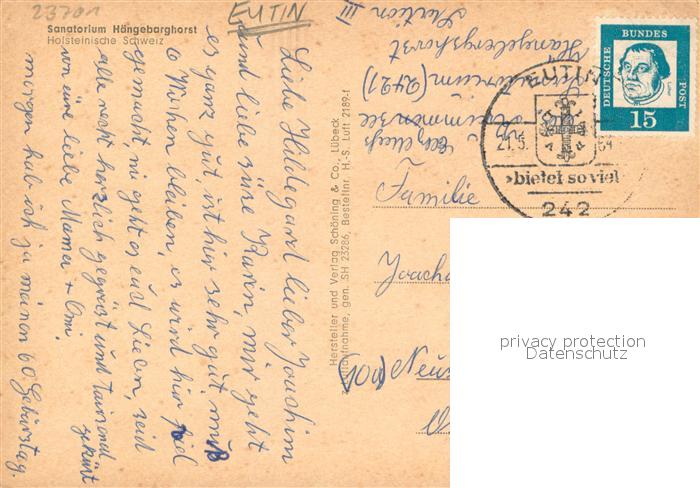 23701
EUTIN
Sanatorium Hängebarghorst
Holsteinische Schweiz
Liebe Hildegard lieber Joachim
und liebe süse Karin, mir geht
es ganz gut, ist hier sehr gut, muß
6 Wochen bleiben, es wird hier viel
gemacht, wie geht es euch Lieben, seid
alle recht herzlich gegrüst und Tausend
geküst
von eure liebe Mama + Omi.
morgen hab ich ja meinen 60 Geburtstag.
Hersteller und Verlag Schöning & Co., Lübeck
Luftaufnahme, gen. SH 23286, Bestellnr. H.-S. Luft 2189-f
(2421)
Hängebargshorst
Station III
DEUTSCHE BUNDES POST
15
EUTIN
21.5. 64
»bietet so viel
242
Familie
Joach
(10a) Neus
privacy protection
Datenschutz